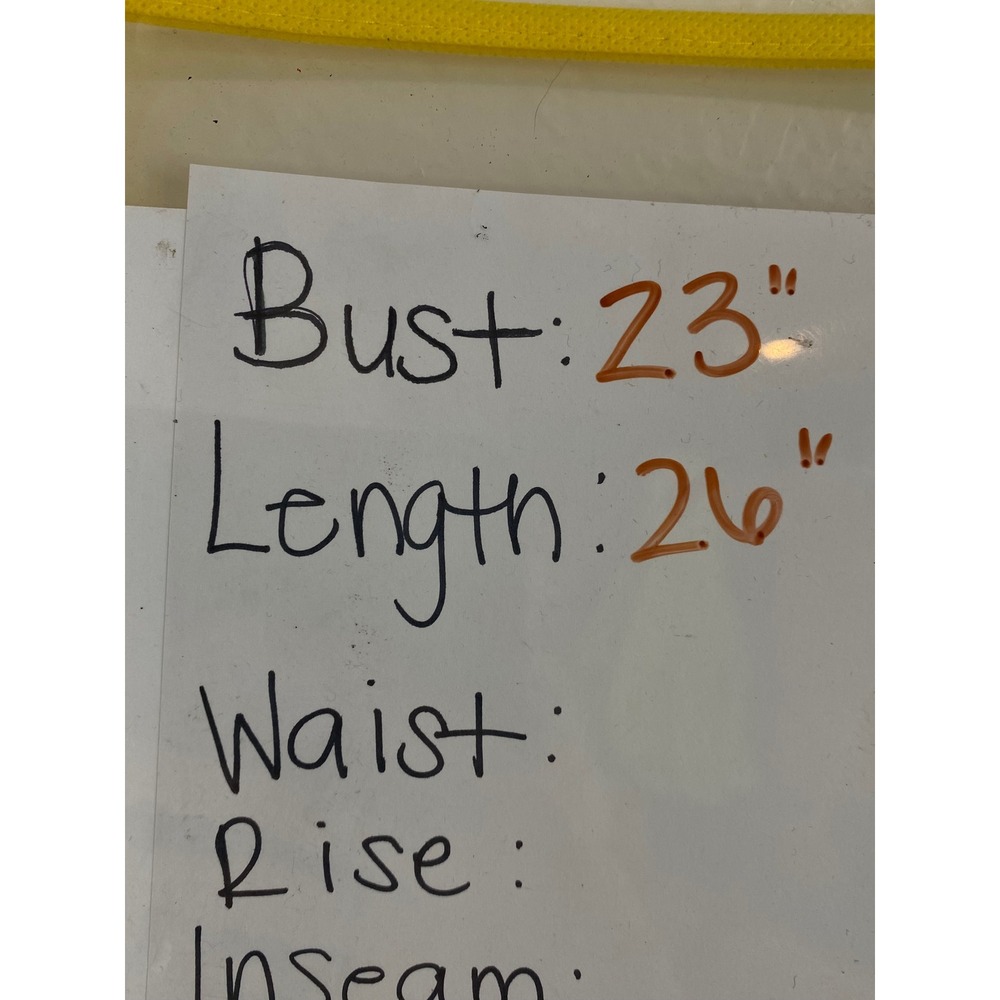 Bust: 23"
Length: 26"
Waist:
Rise:
Inseam: